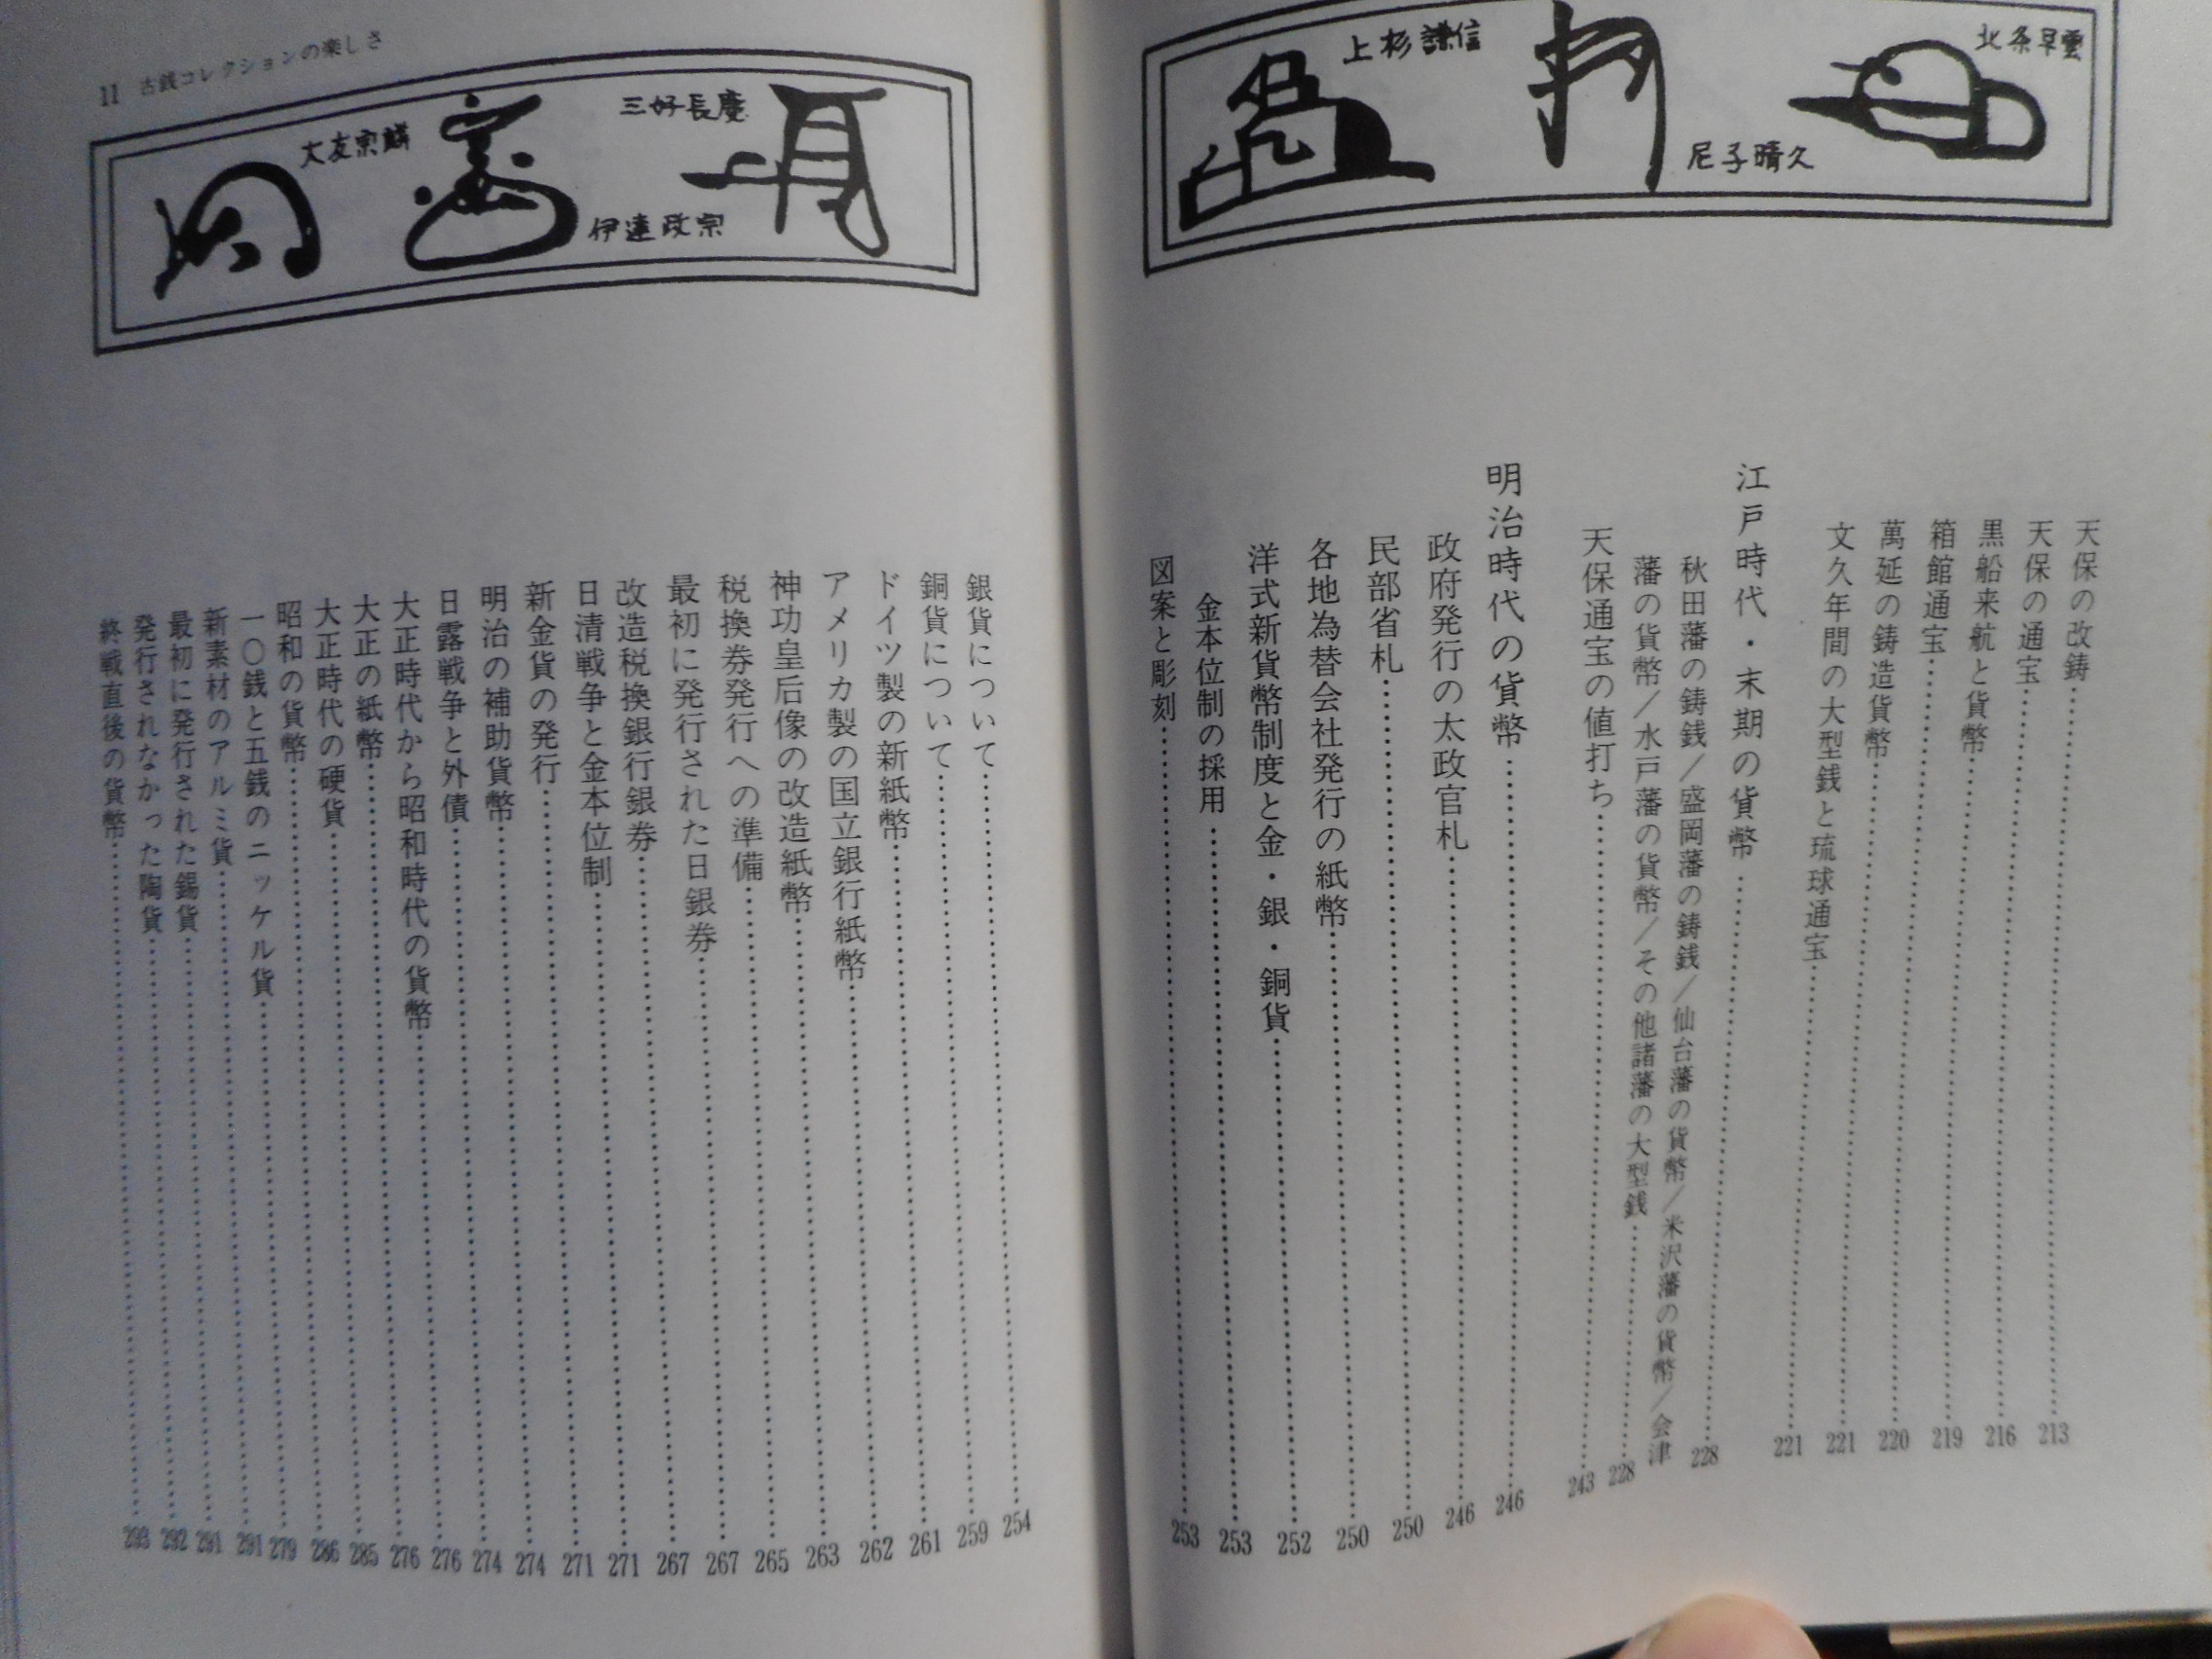 北条早雲
尼子晴久
上杉謙信
天保の改鋳……213
天保の通宝……216
黒船来航と貨幣……219
箱館通宝……220
萬延の鋳造貨幣……221
文久年間の大型銭と琉球通宝……221
江戸時代・末期の貨幣……228
秋田藩の鋳銭/盛岡藩の鋳銭/仙台藩の貨幣/米沢藩の貨幣/会津
藩の貨幣/水戸藩の貨幣/その他諸藩の大型銭……228
天保通宝の値打ち……243
明治時代の貨幣……246
政府発行の太政官札……246
民部省札……250
各地為替会社発行の紙幣……250
洋式新貨幣制度と金・銀・銅貨……252
金本位制の採用……253
図案と彫刻……253
11 古銭コレクションの楽しさ
三好長慶
伊達政宗
大友宗麟
銀貨について……254
銅貨について……259
ドイツ製の新紙幣……261
アメリカ製の国立銀行紙幣……262
神功皇后像の改造紙幣……263
税換券発行への準備……265
最初に発行された日銀券……267
改造税換銀行銀券……267
日清戦争と金本位制……271
新金貨の発行……271
明治の補助貨幣……274
日露戦争と外債……274
大正時代から昭和時代の貨幣……276
大正の紙幣……276
大正時代の硬貨……285
昭和の貨幣……286
一〇銭と五銭のニッケル貨……279
新素材のアルミ貨……291
最初に発行された錫貨……291
発行されなかった陶貨……292
終戦直後の貨幣……293